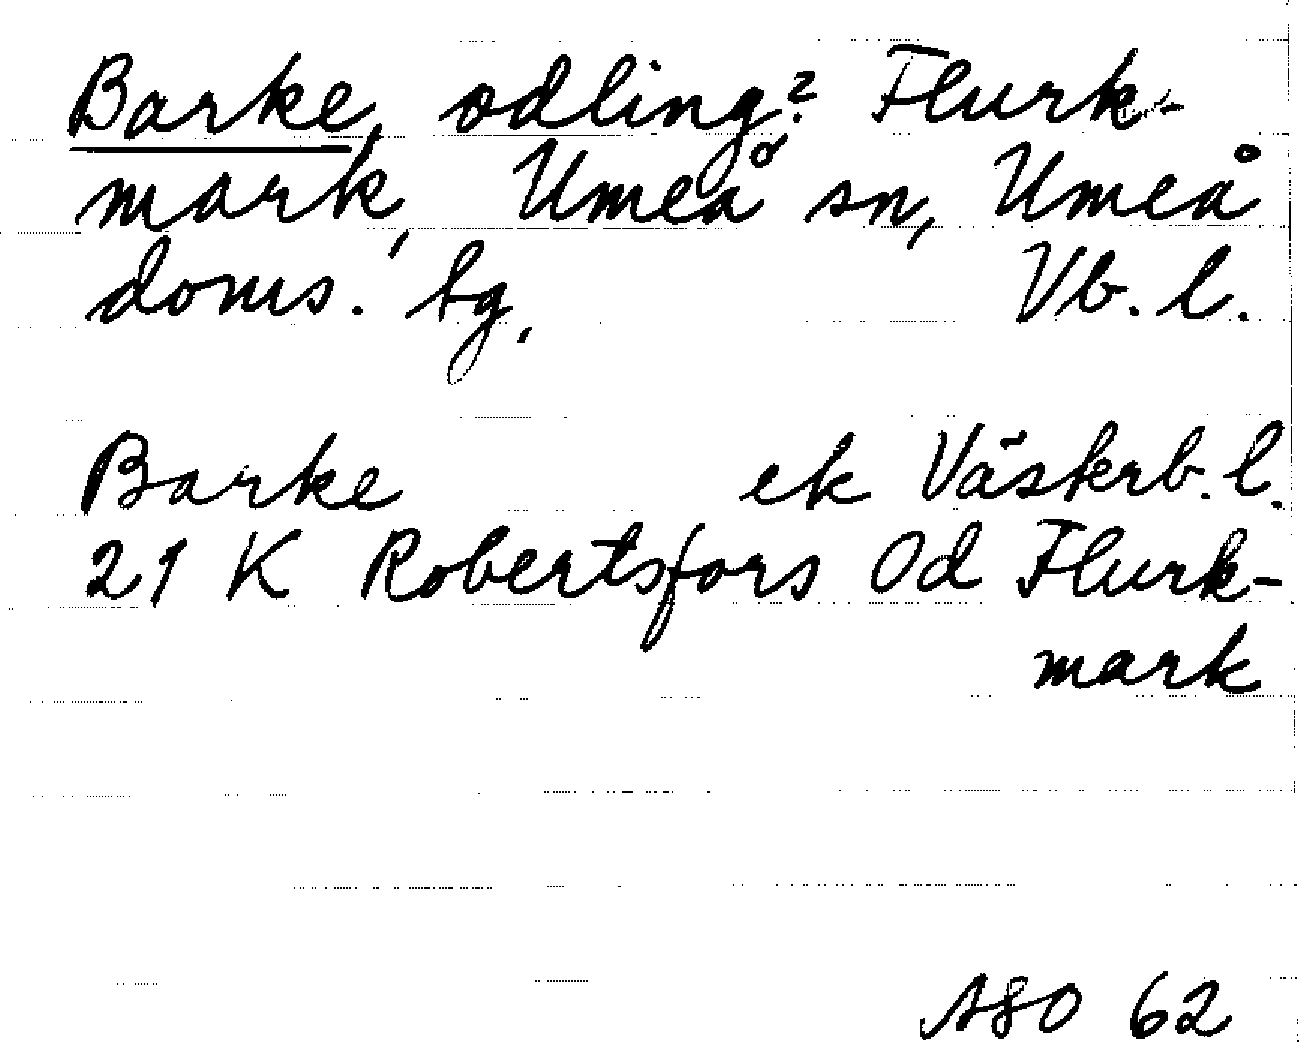 Barke, odling? Flurk-
mark, Umeå sn, Umeå
doms. tg, Vb. l.
Barke ek Västerb. l.
21 K Robertsfors Od Flurk-
mark
ASO 62